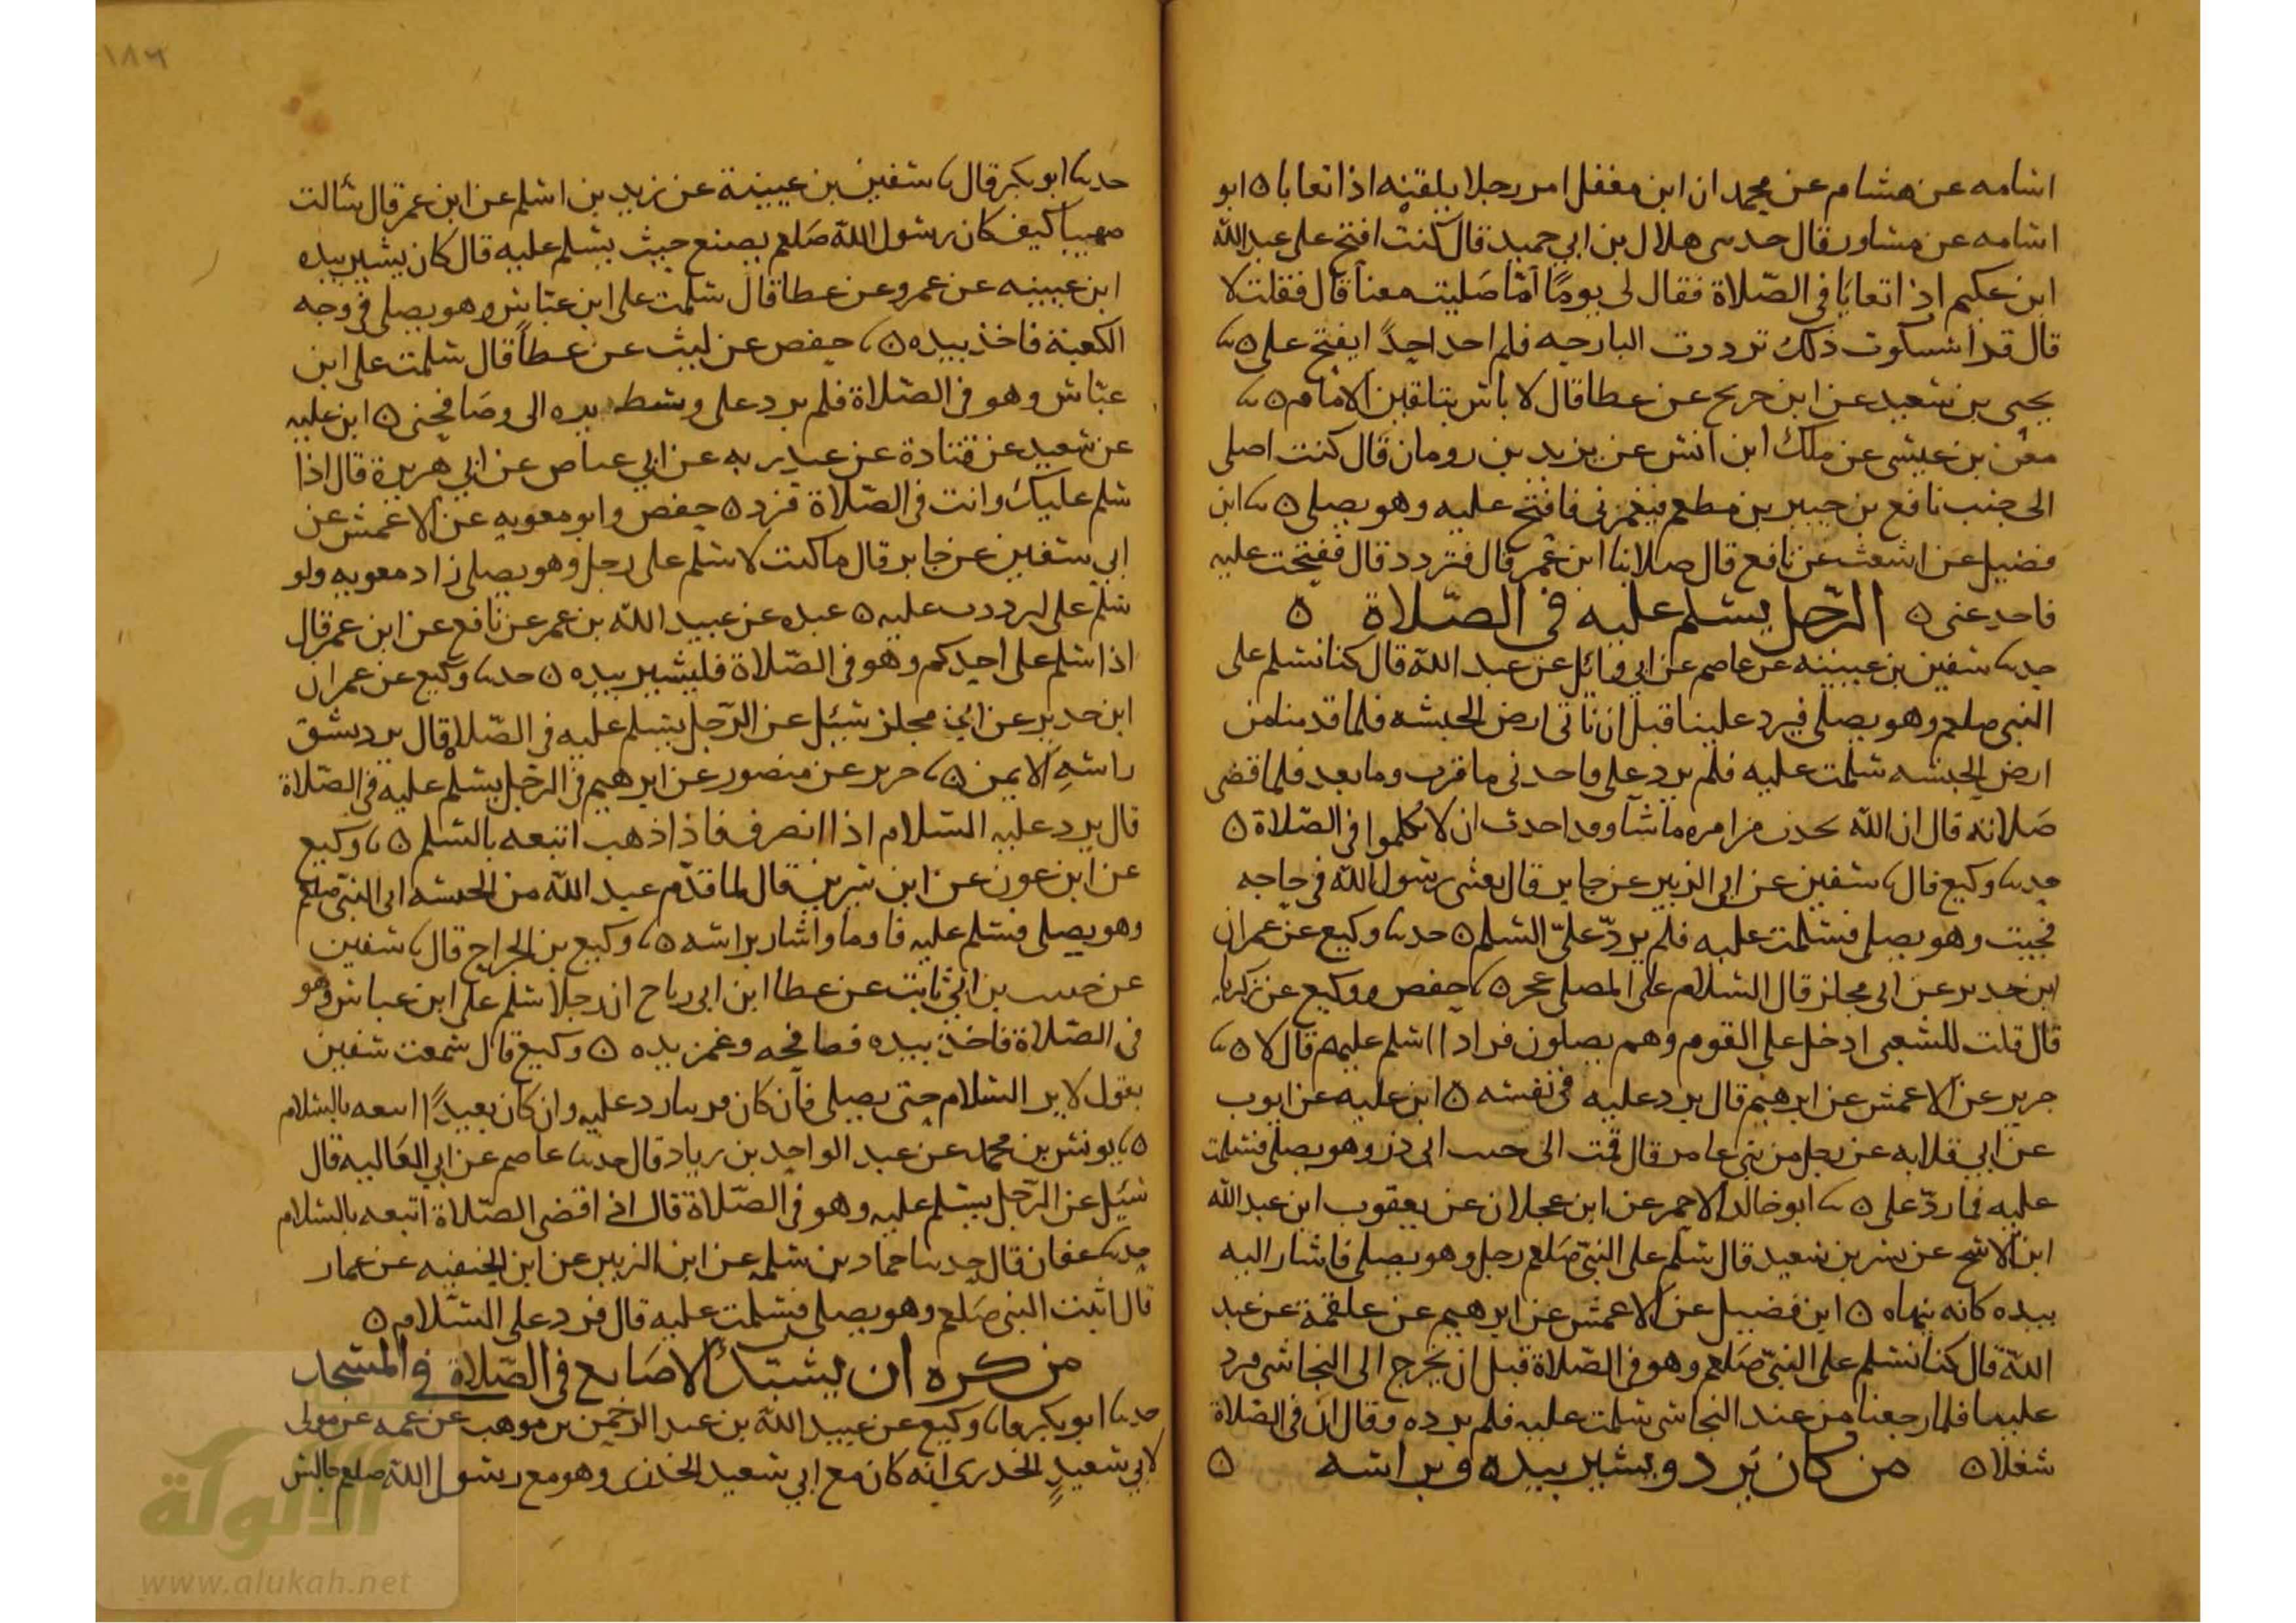 اسامه عن هشام عن محمد ان ابن مغفل امر رجلا يلقنه اذا تعايا ٥ ابو
اسامه عن مساور قال حدثنى هلال بن ابي حميد قال كنت افتح على عبد الله
ابن عكيم اذا تعايا في الصلاة فقال لى يوما اما صليت معنا قال فقلت لا
قال قد اسكوت ذلك ترددت البارحه فلم احد احدا يفتح على ٥ ثنا
يحيى بن سعيد عن ابن جريج عن عطا قال لا باس بتلقين الامام ٥ ثنا
معن بن عيسى عن ملك ابن انس عن يزيد بن رومان قال كنت اصلى
الى جنب نافع بن جبير بن مطعم فيغمزنى فافتح عليه وهو يصلى ٥ ثنا ابن
فضيل عن اشعث عن نافع قال صلا بنا ابن عمر قال فتردد قال ففتحت عليه
فاحد عنى ٥ الرجل يسلم عليه في الصلاة ٥
حدثنا سفين بن عيينه عن عاصم عن ابي وائل عن عبد الله قال كنا نسلم على
النبى صلعم وهو يصلى فيرد علينا قبل ان ناتى ارض الحبشه فلما قدمنا من
ارض الحبشه سلمت عليه فلم يرد على فاخذنى ما قرب وما بعد فلما قضى
صلاته قال ان الله يحدث من امره ما شا وقد احدث ان لا تكلموا في الصلاة ٥
حدثنا وكيع قال ثنا سفين عن ابي الزبير عن جابر قال بعثنى رسول الله في حاجه
فجيت وهو يصلى فسلمت عليه فلم يرد علىّ السلم ٥ حدثنا وكيع عن عمران
ابن حدير عن ابى مجلز قال السلام على المصلى عجز ٥ ثنا حفص ووكيع عن زكريا
قال قلت للشعبى ادخل على القوم وهم يصلون فرادا اسلم عليهم قال لا ٥ ثنا
جرير عن الاعمش عن ابرهيم قال يرد عليه في نفسه ٥ ابن عليه عن ايوب
عن ابي قلابه عن رجل من بني عامر قال قمت الى جنب ابى ذر وهو يصلى فسلمت
عليه فما ردّ على ٥ ثنا ابو خالد الاحمر عن ابن عجلان عن يعقوب ابن عبد الله
ابن الاشج عن بسر بن سعيد قال سلم على النبى صلعم رجل وهو يصلى فاشار اليه
بيده كانه ينهاه ٥ ابن فضيل عن الاعمش عن ابرهيم عن علقمة عن عبد
الله قال كنا نسلم على النبى صلعم وهو في الصلاة قبل ان يخرج الى النجاشى فيرد
علينا فلما رجعنا من عند النجاشى سلمت عليه فلم يرده وقال ان في الصلاة
شغلا ٥ من كان يرد ويشير بيده وبراسه ٥
١٨٦
حدثنا ابو بكر قال ثنا سفين بن عيينة عن زيد بن اسلم عن ابن عمر قال سالت
صهيبا كيف كان رسول الله صلعم يصنع حيث يسلم عليه قال كان يشير بيده
ابن عيينه عن عمرو عن عطا قال سلمت على ابن عباس وهو يصلى في وجه
الكعبة فاخذ بيده ٥ ثنا حفص عن ليث عن عطا قال سلمت على ابن
عباس وهو في الصلاة فلم يرد على وبسط يده الى وصافحنى ٥ ابن عليه
عن سعيد عن قتادة عن عبد ربه عن ابي عياض عن ابي هريرة قال اذا
سلم عليك وانت في الصلاة فرد ٥ حفص وابو معويه عن الاعمش عن
ابي سفين عن جابر قال ما كنت لاسلم على رجل وهو يصلى زاد معويه ولو
سلم على لرددت عليه ٥ عبده عن عبيد الله بن عمر عن نافع عن ابن عمر قال
اذا سلم على احدكم وهو في الصلاة فليشير بيده ٥ حدثنا وكيع عن عمران
ابن حدير عن ابى مجلز سئل عن الرجل يسلم عليه في الصلاة قال يرد بشق
راسه الايمن ٥ ثنا جرير عن منصور عن ابرهيم في الرجل يسلم عليه في الصلاة
قال يرد عليه السلام اذا انصرف فاذا ذهب اتبعه بالسلم ٥ ثنا وكيع
عن ابن عون عن ابن سرين قال لما قدم عبد الله من الحبشه اتى النبى صلعم
وهو يصلى فسلم عليه فاوما واشار براسه ٥ ثنا وكيع بن الجراح قال ثنا سفين
عن حبيب بن ابي ثابت عن عطا ابن ابى رباح ان رجلا سلم على ابن عباس وهو
في الصلاة فاخذ بيده فصافحه وغمز يده ٥ وكيع قال سمعت سفين
يقول لا يرد السلام حتى يصلى فان كان قريبا رد عليه وان كان بعيدا اتبعه بالسلام
٥ ثنا يونس بن محمد عن عبد الواحد بن زياد قال حدثنا عاصم عن ابي العاليه قال
سئل عن الرجل يسلم عليه وهو في الصلاة قال اذا قضى الصلاة اتبعه بالسلام
حدثنا عفان قال حدثنا حماد بن سلمه عن ابن الزبير عن ابن الحنفيه عن عمار
قال اتيت النبى صلعم وهو يصلى فسلمت عليه قال فرد على السلام ٥
من كره ان يشبك الاصابع في الصلاة في المسجد
حدثنا ابو بكر قال ثنا وكيع عن عبيد الله بن عبد الرحمن بن موهب عن عمه عن مولى
لابي سعيد الخدرى انه كان مع ابي سعيد الخدرى وهو مع رسول الله صلعم جالس
الألوكة
www.alukah.net